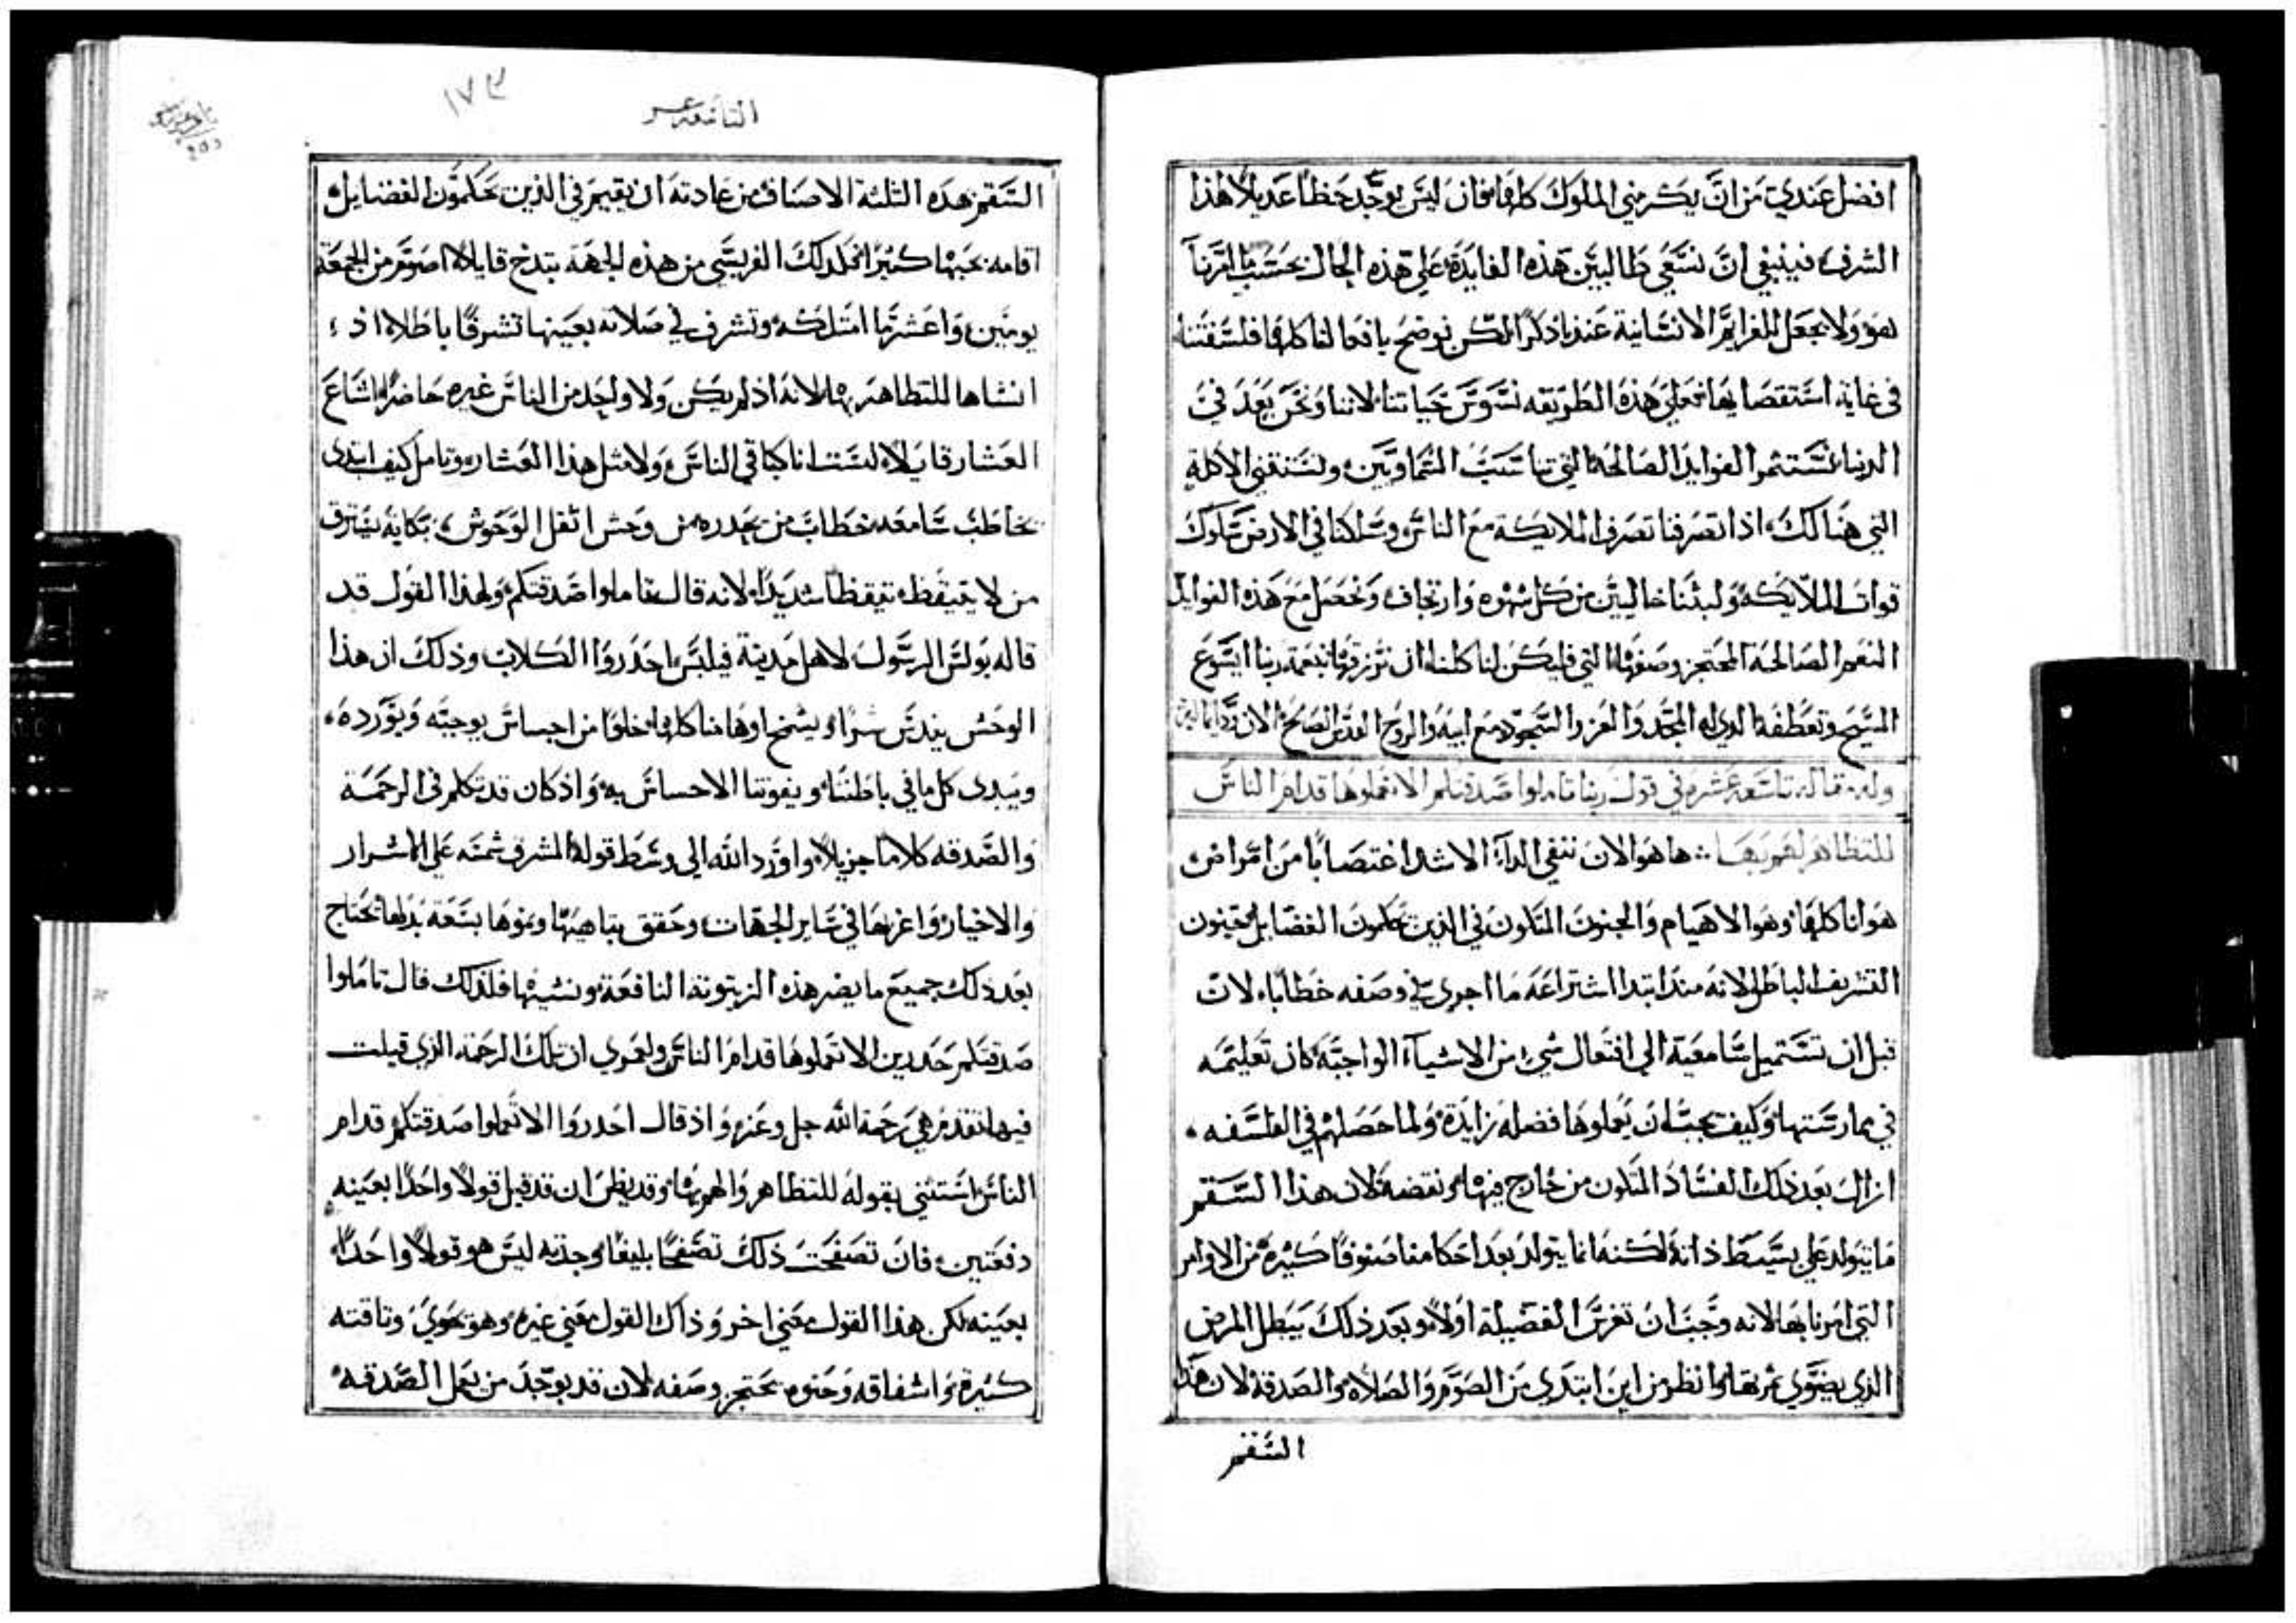 افضل عندي من ان يكرمني الملوك كلهم فان ليس يوجد حظا عديلا هذا
الشرف فينبغي ان نسعى طالبين هذه الفايدة على هذه الحال بحسب ما امرنا
هو ولا نجعل الغرايم الانسانية عندنا ذكرا لكن نوضح يافعا لنا كلها فلسفتنا
في غاية استقصايها فعلى هذه الطريقه نسوس حياتنا لاننا ونحن بعد في
الدنيا نستثمر الفوايد الصالحة التي تناسب السماويين ونستقني الاكلة
التي هنالك اذا تصرفنا تصرف الملايكة مع الناس وسلكنا في الارض سلوك
قوات الملايكه ولبثنا خاليين من كل شهوه وارتجاف ونحصل مع هذه الفوايد
النعم الصالحة المحتجز وصفها التي فليكن لنا كلنا ان نرزقها بنعمة ربنا ايسوع
المسيح وتعطفه الذي له المجد والعز والسجود مع ابيه والروح القدس الصالح الان ودايما امين
وله مقاله تاسعه عشره في قول ربنا تاملوا صدقتكم الا تعملوها قدام الناس
للتظاهر لهم بها ها هو الان ننفي الداء الاشد اغتصابا من امراض
هوانا كلها وهو الاهيام والجنون المتلون في الذين يحكمون الفضايل بجنون
التشريف الباطل لانه منذ ابتدا اشتراعه ما اجرى في وصفه خطابا لان
قبل ان تستميل سامعيه الى افتعال شي من الاشياء الواجبة كان تعليمه
في ممارستها وكيف يجب ان يعملوها فضله زايدة ولما حصلهم في الفلسفه
ازال بعد ذلك الفساد المتلون من خارج فيها ونقضه لان هذا السقم
ما يتولد على بسيط ذاته لكنه انما يتولد بعد احكامنا صنوفا كثيرة من الاوامر
التي امرنا بها لانه وجب ان تغرس الفضيلة اولا وبعد ذلك يبطل المرض
الذي يضوي ثمرتها وانظر من اين ابتدى من الصوم والصلاة والصدقة لان هذا
السقم
التاسعه عشر
١٧٣
السقم هذه الثلثة الاصناف من عادته ان يقيم في الذين يحكمون الفضايل
اقامه بحبها كثيرا فلذلك الفريسي من هذه الجهة يتدخ قايلا اصوم من الجمعة
يومين واعشر ما امتلكه وتشرف في صلاته بعينها تشرفا باطلا اذ
انشاها للتظاهر بها لانه اذ لم يكن ولا واحد من الناس غيره حاضرا اشاع
العشار قايلا لست انا كباقي الناس ولا مثل هذا العشار وتامل كيف ابتدى
يخاطب سامعه خطاب من يحدره من وحش اثقل الوحوش نكايه يسترق
من لا يتيقظ تيقظا شديدا لانه قال تاملوا صدقتكم ولهذا القول قد
قاله بولس الرسول لاهل مدينة فيلبس احدروا الكلاب وذلك ان هذا
الوحش يندس سرا ويشخ اوهامنا كلها خلوا من احساس يوجبه ويورده
ويبدى كل ما في باطننا ويفوتنا الاحساس به واذ كان قد تكلم في الرحمة
والصدقه كلاما جزيلا واورد الله الى وسط قوله المشرق شمسه على الاشرار
والاخيار واغرها في ساير الجهات وحقق تباهيها ونموها بسعة بذلها يحتاج
بعد ذلك جميع ما يضر هذه الزيتونة النافعة ونسيها فلذلك قال تاملوا
صدقتكم حدرين الا تعملوها قدام الناس ولعمري ان تلك الرحمة الذي قيلت
فيما تقدم هي رحمة الله جل وعز واذ قال احدروا الا تعملوا صدقتكم قدام
الناس استثنى بقوله للتظاهر لهم بها وقد يظن ان قد قيل قولا واحدا بعينه
دفعتين فان تصفحت ذلك تصفحا بليغا وجدته ليس هو قولا واحدا
بعينه لكن هذا القول معنى اخر وذاك القول معنى غيره وهو يحوي وثاقته
كثيرة واشفاقه وحنوه يحتجز وصفه لان قد يوجد من يعمل الصدقه